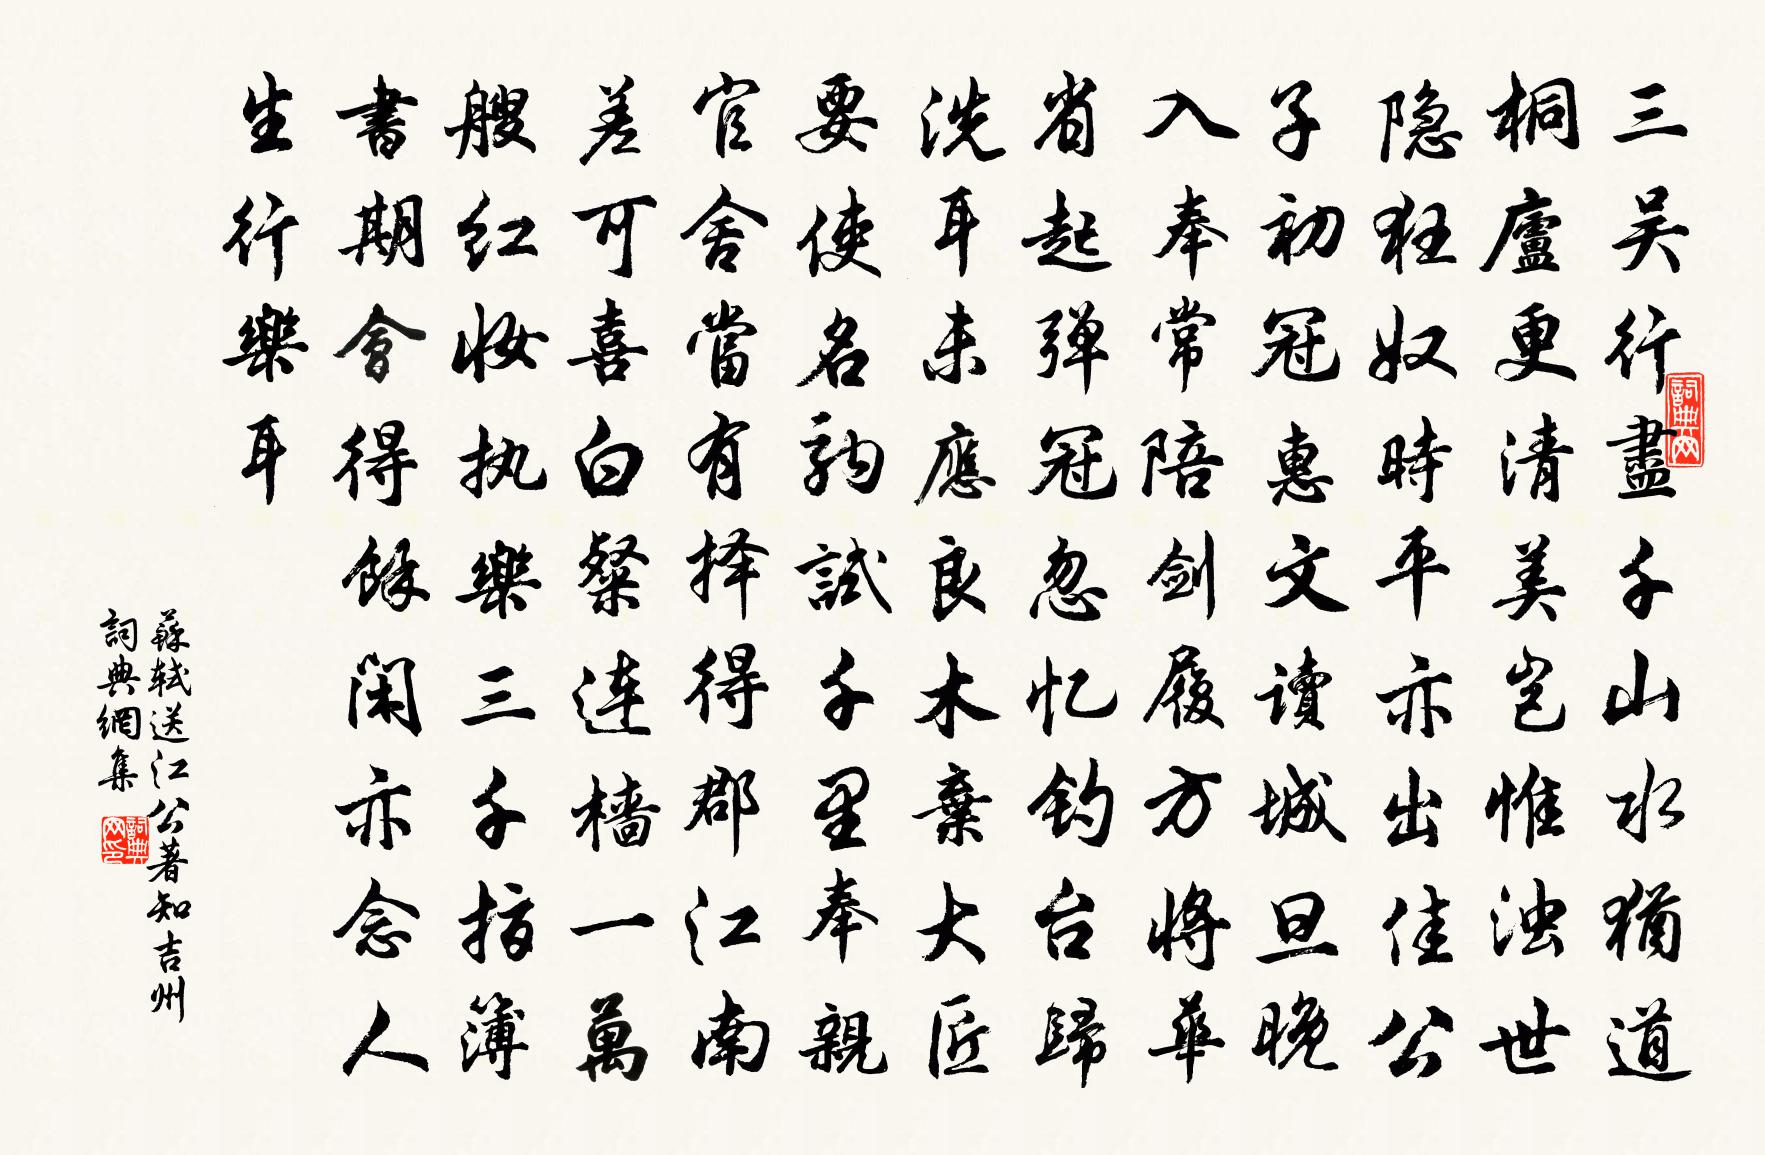 三吴行盡千山水猶道
桐廬更清美岂惟浊世
隐狂奴時平亦出佳公
子初冠惠文讀城旦晚
入奉常陪剑履方將華
省起弹冠忽忆钓台歸
洗耳未應良木棄大匠
要使名驹試千里奉親
官舍當有择得郡江南
差可喜白粲连樯一萬
艘红妆执樂三千指簿
書期會得餘闲亦念人
生行樂耳
蘇轼送江公著知吉州
詞典網集
詞典网
詞典网印